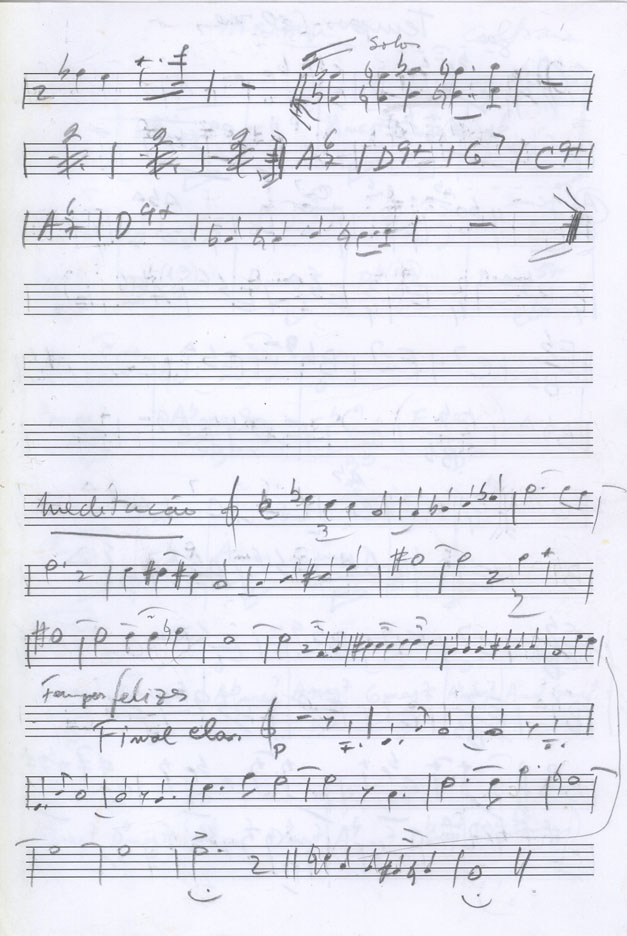 Solos
A 6 7 D 9+ G 7 C 9+
A 6 7 D 9+
Meditação
3
Tempos felizes
Final clar.
P